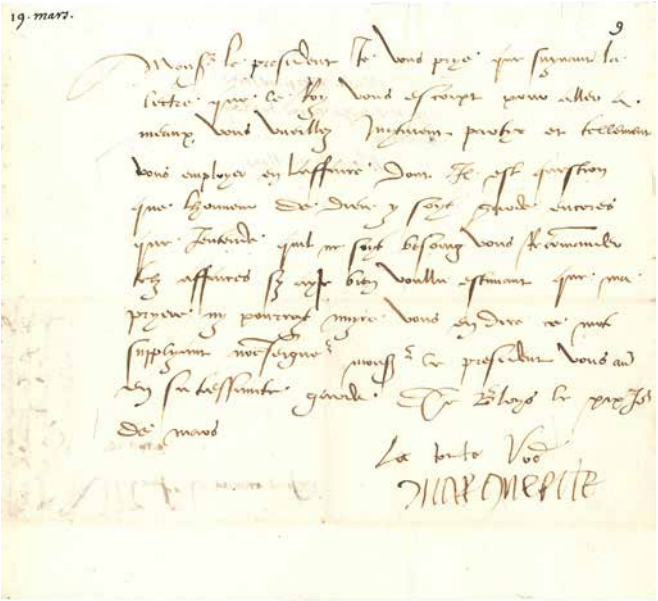 19. mars.
9
Mons.r le president Je vous prye que suyvant la
lectre que le Roy vous escript pour aller a
meaulx vous vueillez partir et tellement
vous employer en laffaire dont Il est question
que lhonneur de dieu y soyt garde encores
que Jentende quil ne soyt besoing vous Recommander
telz affaires sy ayje bien voullu estimant que ma
pryere ny pourroit nuyre vous en dire ce mot
supplyant nre seigneur mons.r le president vous avoir
en sa tressaincte garde De Bloys le xixe Jor
de mars
La toute vre
MARGUERITE